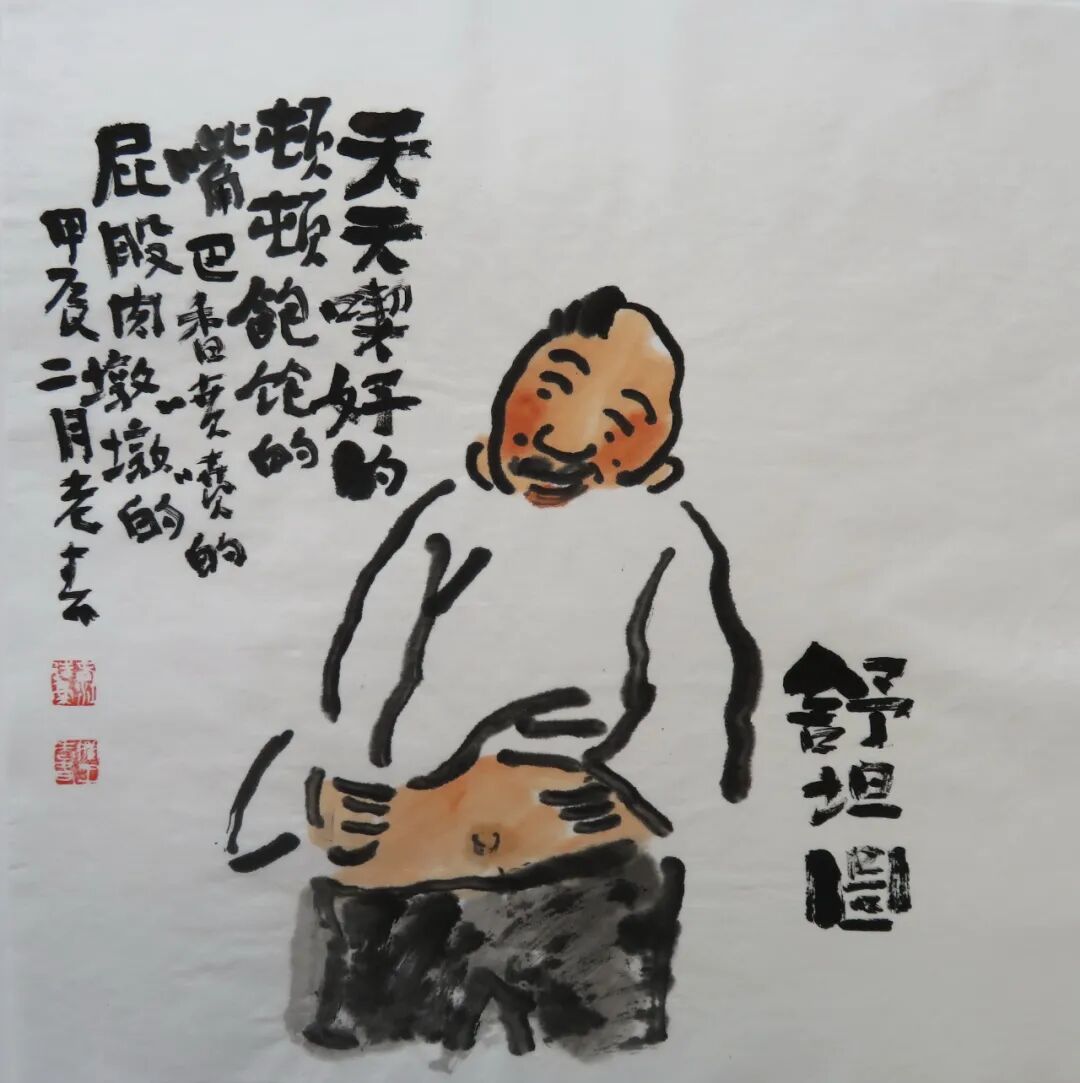 舒坦圖
天天喫好的
頓頓飽饱的
嘴巴香喷喷的
屁股肉墩墩的
甲辰二月老